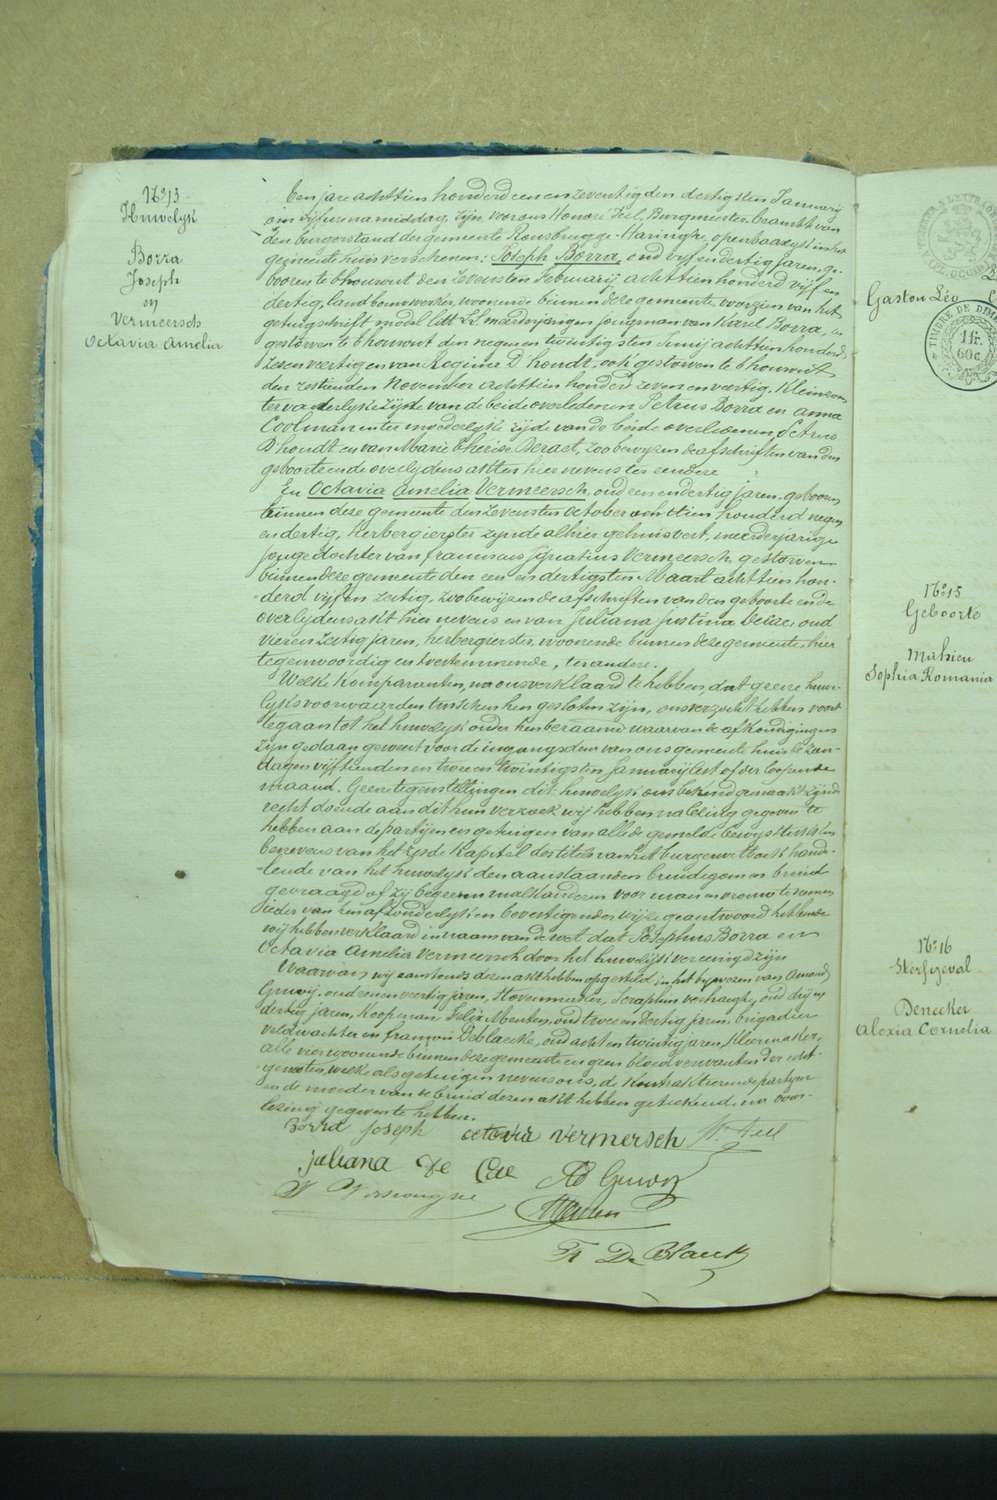 N° 13
Huwelyk
Borra
Joseph
en
Vermeersch
Octavia Amelia
Een jare achttien honderd een en zeventig den dertigsten January
om vyf uren namiddag, zyn voor ons Honoré Feil, Burgmeester beambte van
den burgerstand der gemeente Rousbrugge-Haringhe, openbaarlyk in het
gemeente huis verschenen: Joseph Borra, oud vyf en dertig jaren, ge-
booren te thourout den zevensten february achttien honderd vyf en
dertig, landbouwwerker, woonende binnen deze gemeente, voorzien van het
getuigschrift model litt meerderjarigen jongman van Karel Borra,
gestorven te thourout den negen en twintigsten Juny achttien honderd
zes en veertig en van Regina D'hondt, ook gestorven te thourout
den zestienden November achttien honderd zeven en veertig, kleinzoon
ter vaderlyke zyde van de beide overledenen Petrus Borra en Anna
Cootman en ter moederlyke zyde van de beide overledenen Petrus
D'hondt en van Marie Thérèse Beraet, zoo bewyzen de afschriften van den
geboorte en de overlydens akten hier nevens ter eendere
En Octavia Amelia Vermeersch, oud een en dertig jaren, gebooren
binnen deze gemeente den zevensten October achttien honderd negen
en dertig, herbergierster zynde alhier gehuisvest, meerderjarige
jonge dochter van franciscus Ignatius Vermeersch gestorven
binnen deze gemeente den een en dertigsten Maart achttien hon-
derd vyf en zestig, zoo bewyzen de afschriften van den geboorte en de
overlydens akt hier nevens en van Juliana Justina Decae, oud
vier en zestig jaren, herbergierster, woonende binnen deze gemeente, hier
tegenwoordig en toestemmende, ter andere.
Welke komparanten, na ons verklaard te hebben, dat geene huwe-
lyksvoorwaarden tusschen hen gesloten zyn, ons verzocht hebben voort
te gaan tot het huwelyk onder hen beraamd waarvan de afkondigingen
zyn gedaan geweest voor de ingangsdeur van ons gemeente huis de zon-
dagen vyftienden en twee en twintigsten January lest of der loopende
maand. Geene tegenstellingen dit huwelyk ons bekend gemaakt zynde
recht doende aan dit hun verzoek wy hebben na lezing gegeven te
hebben aan de partyen en getuigen van alle de gemelde bewysstukken
benevens van het zesde kapitel des titels van het burgerwetboek hande-
lende van het huwelyk den aanstaanden bruidegom en bruid
gevraagd of zy begeeren malkanderen voor man en vrouw te nemen
ieder van hen afzonderlyk en bevestigender wyze geantwoord hebbende
wy hebben verklaard in naam van de wet dat Josephus Borra en
Octavia Amelia Vermeersch door het huwelyk vereenigd zyn
Waarvan wy aanstonds dezen akt hebben opgesteld in het bywezen van Amand
Gruwy, oud een en veertig jaren, Hovenmeester, Seraphin Verhaeghe, oud dry en
dertig jaren, koopman Felix Meuten, oud twee en dertig jaren, brigadier
veldwachter en françois Deblaecke, oud acht en twintig jaren, kleermaker,
alle vier woonende binnen deze gemeente en geen bloedverwanten der echt-
genoten, welke als getuigen nevens ons, de kontrakteerende partyen
en de moeder van de bruid dezen akt hebben geteekend, na voor-
lezing gegeven te hebben.
Borra Joseph octavia vermersch H. Feil
Juliana De Cae Ad Gruwy
Meuten
Fr De Blaeck
Gaston Léo
TIMBRE DE DIME
1 fr.
60 c.
N° 15
Geboorte
Mahieu
Sophia Romania
N° 16
Sterfgeval
Denecker
Alexia Cornelia